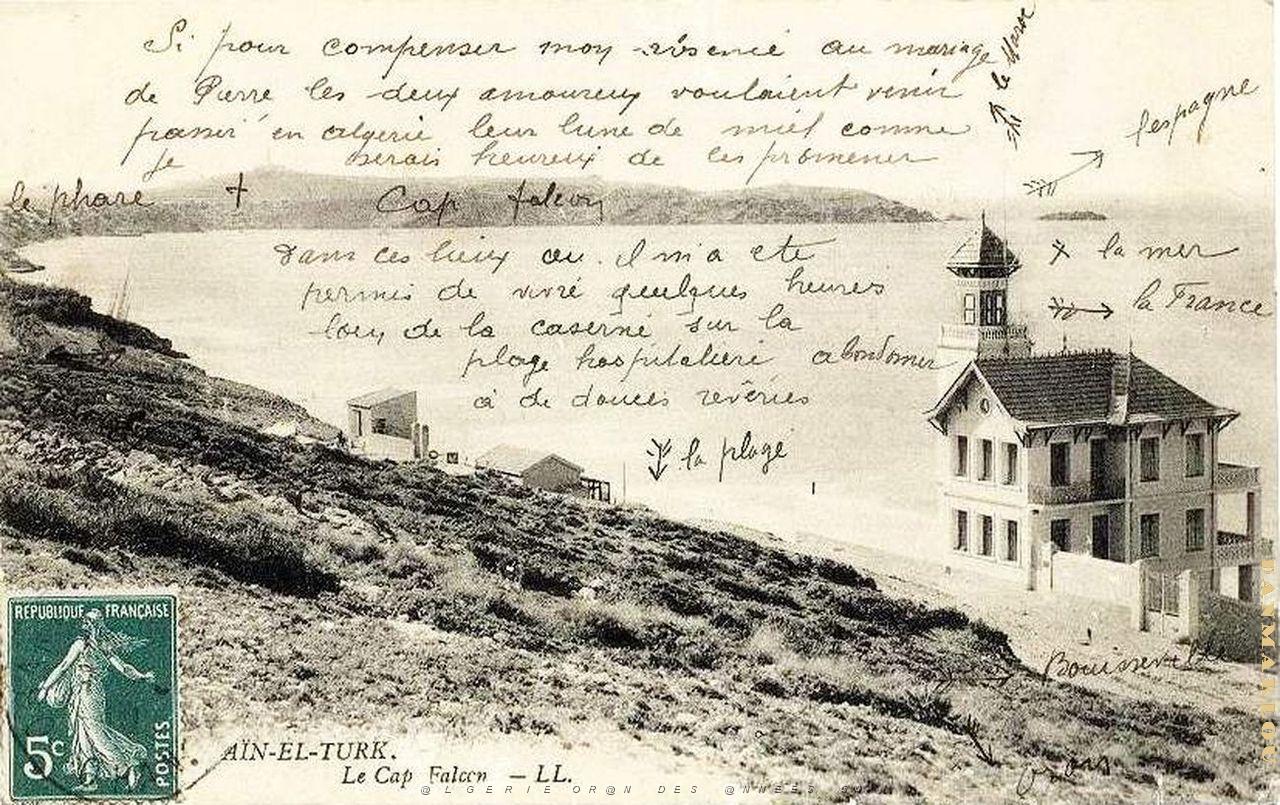 Si pour compenser mon absence au mariage
de Pierre les deux amoureux voulaient venir
passer en algerie leur lune de miel comme
je serais heureux de les promener
le Maroc
l'espagne
le phare + Cap falcon
dans ces lieux ou il m'a ete
permis de vivre quelques heures
loin de la caserne sur la
plage hospitaliere abandonner
à de douces rêveries
la mer
la France
la plage
Bousseville
Oran
REPUBLIQUE FRANÇAISE
5c
POSTES
AÏN-EL-TURK.
Le Cap Falcon — LL.
@LGERIE OR@N DES @NNEES